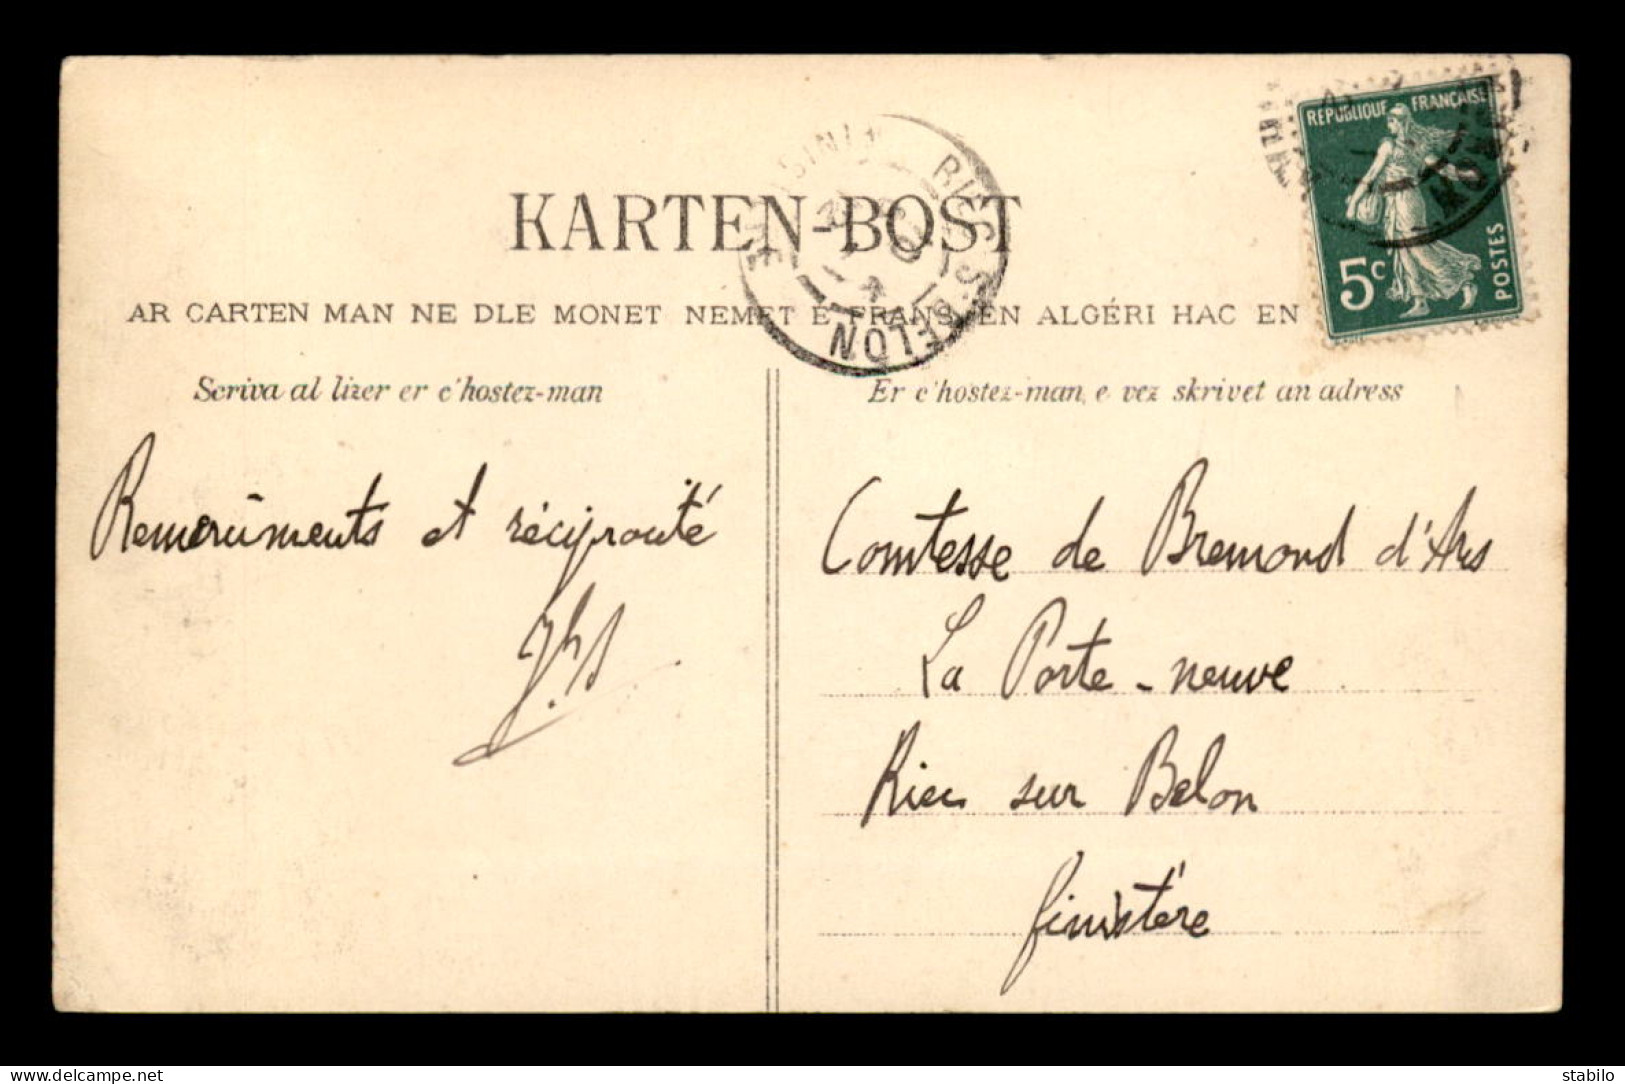 KARTEN-BOST
AR CARTEN MAN NE DLE MONET NEMET E FRANS, EN ALGÉRI HAC EN
Scriva al lizer er c'hostez-man
Er c'hostez-man, e vez skrivet an adress
REPUBLIQUE FRANÇAISE
5c POSTES
RIEC-S-BELON
FINISTERE
Remerciments et réciprocité
Comtesse de Bremond d'Ars
La Porte-neuve
Riec sur Belon
finistère
delcampe.net
stabilo